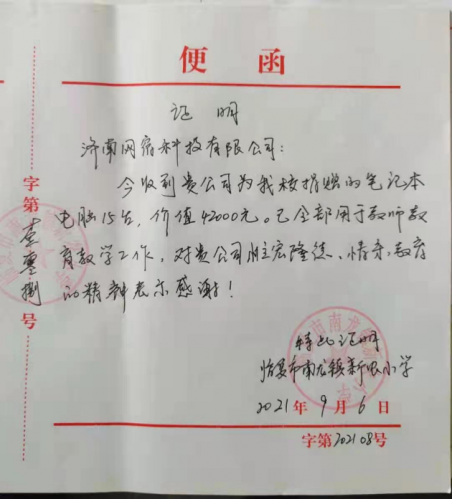 便函
证明
济南网宿科技有限公司:
今收到贵公司为我校捐赠的笔记本
电脑15台,价值42000元。已全部用于教师教
育教学工作,对贵公司宏隆德、情系教育
的精神表示感谢!
特此证明
市南龙镇新小学
2021年9月6日
字第202108号
字第壹零捌号